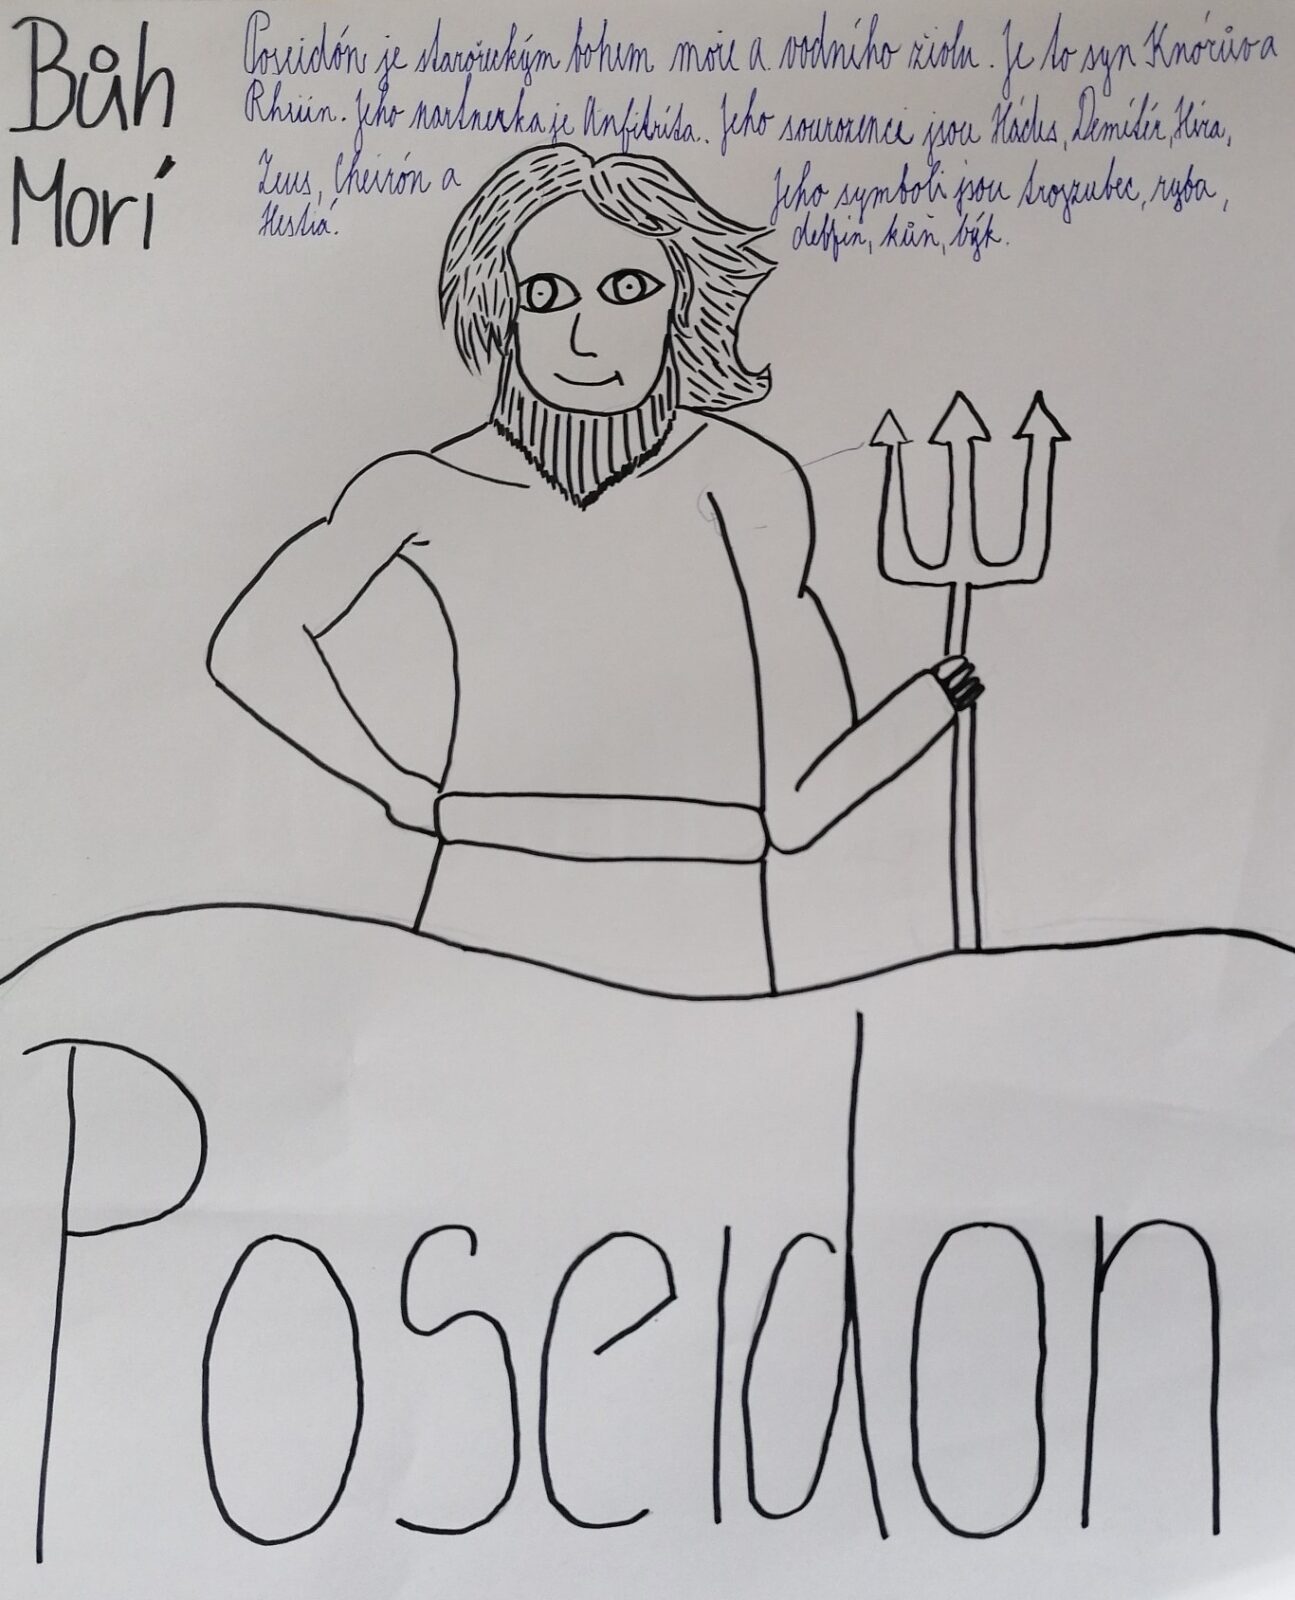 Bůh
Morí
Poseidón je starořeckým bohem moře a vodního živlu. Je to syn Knórův a
Rhéiin. Jeho partnerka je Anfitríta. Jeho sourozenci jsou Hádes, Demétér, Héra,
Zeus, Cheirón a
Hestiá.
Jeho symboli jsou trojzubec, ryba,
delfín, kůň, býk.
Poseidon